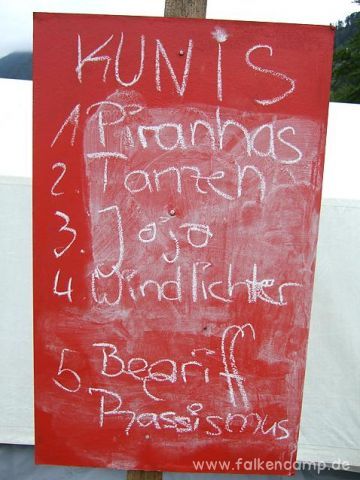 KUNiS
1 Piranhas
2. Tanzen
3. Jojo
4. Windlichter
5. Begriff
Rassismus
www.falkencamp.de